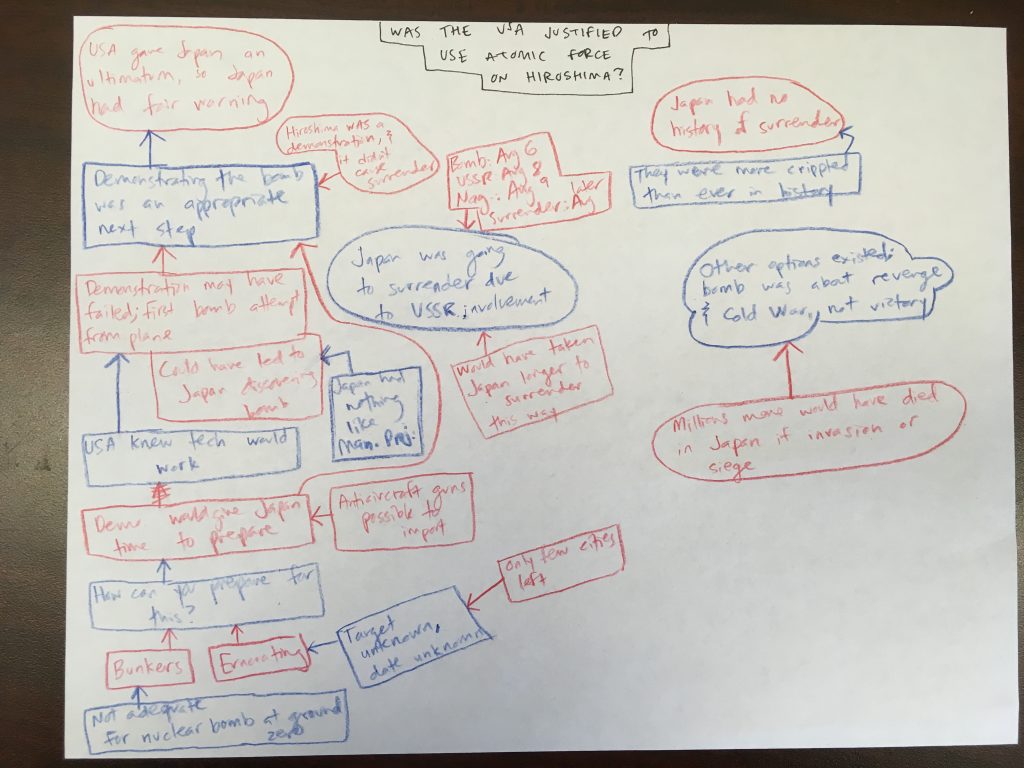 WAS THE USA JUSTIFIED TO
USE ATOMIC FORCE
ON HIROSHIMA?
USA gave Japan an
ultimatum, so Japan
had fair warning
Hiroshima WAS a
demonstration, &
it didn't
cause
surrender
Demonstrating the bomb
was an appropriate
next step
Bomb: Aug 6
USSR: Aug 8
Nag.: Aug 9
surrender: Aug later
Japan had no
history of surrender
They were more crippled
than ever in history
Japan was going
to surrender due
to USSR involvement
Other options existed;
bomb was about revenge
& Cold War, not victory
Demonstration may have
failed; first bomb attempt
from plane
Could have led to
Japan discovering
bomb
Japan had
nothing
like
Man. Proj.
Would have taken
Japan longer to
surrender
this way
Millions more would have died
in Japan if invasion or
siege
USA knew tech would
work
Demo would give Japan
time to prepare
Antiaircraft guns
possible to
import
How can you prepare for
this?
Only few cities
left
Target
unknown,
date unknown
Bunkers
Evacuating
Not adequate
for nuclear bomb at ground
zero